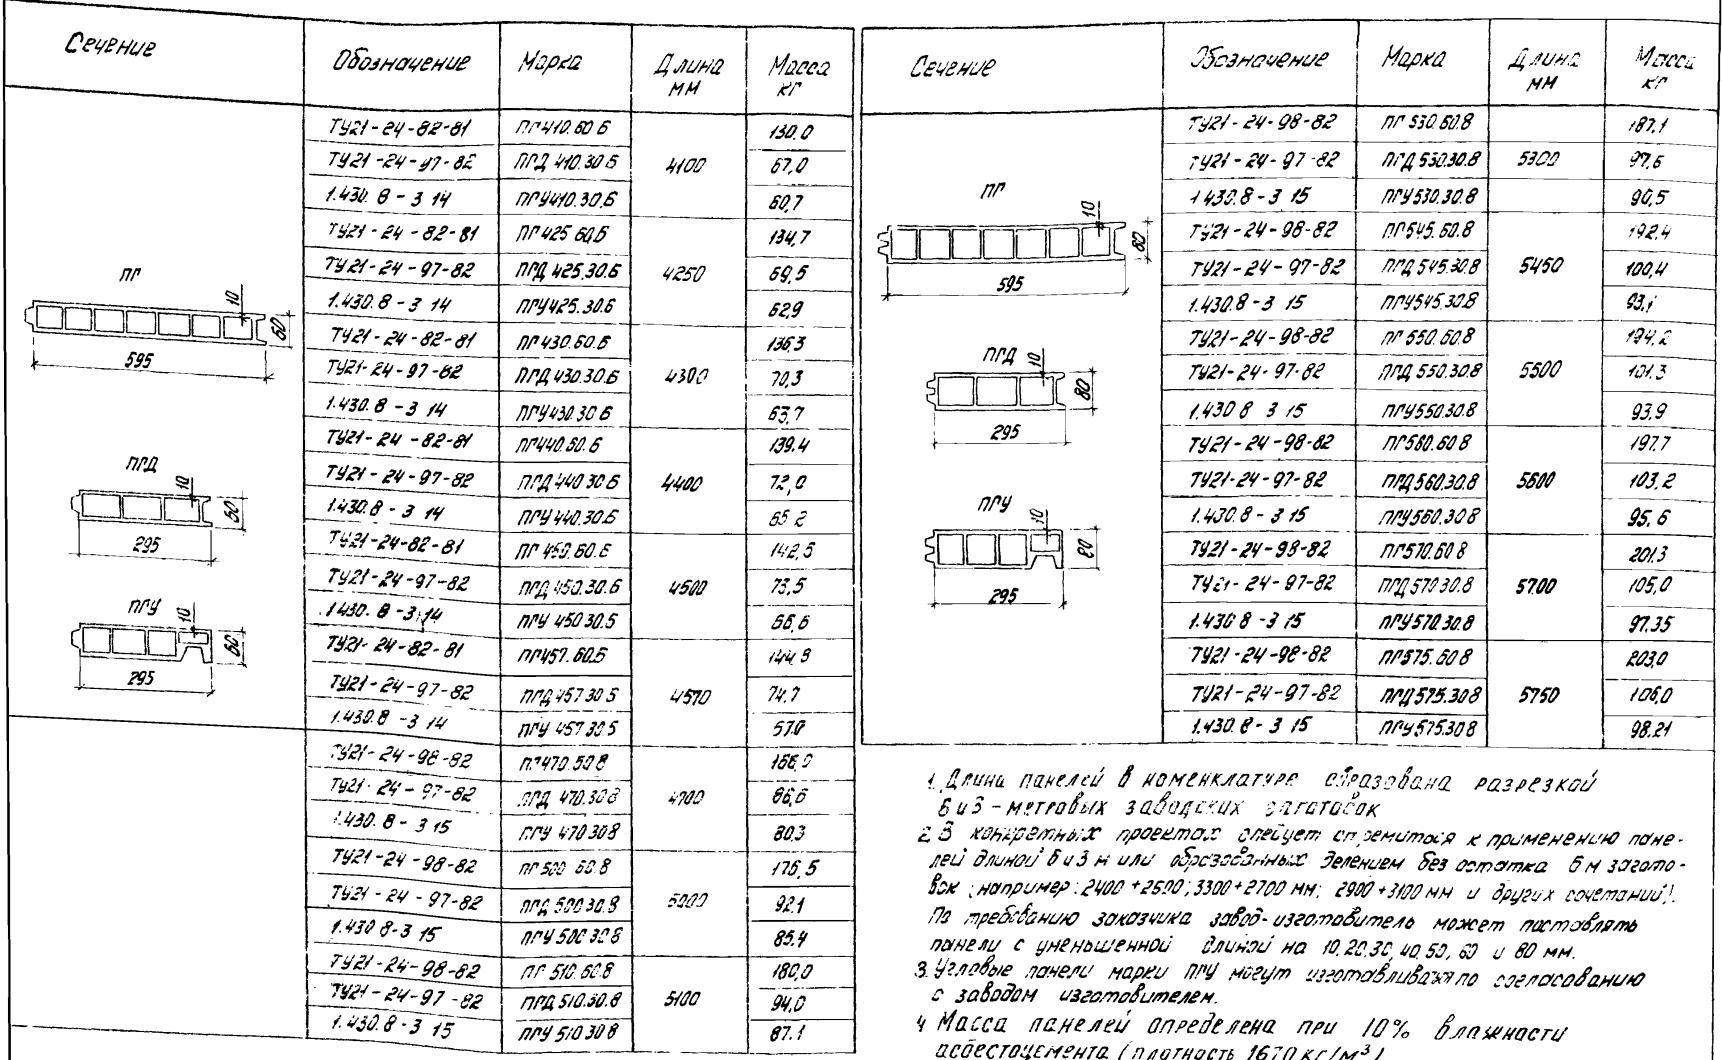 Сечение Обозначение Марка Длина мм Масса кг
ТУ21-24-82-81 ПГ410.60.6 130.0
ТУ21-24-97-82 ПГД 410.30.6 4100 67,0
1.430.8-3 14 ПГУ410.30.6 60,7
ТУ21-24-82-81 ПГ425 60.6 134,7
ТУ21-24-97-82 ПГД 425.30.6 4250 69,5
1.430.8-3 14 ПГУ425.30.6 62,9
ТУ21-24-82-81 ПГ430.60.6 136,3
ТУ21-24-97-82 ПГД 430.30.6 4300 70,3
1.430.8-3 14 ПГУ430.30 6 63,7
ТУ21-24-82-81 ПГ440.60.6 139.4
ТУ21-24-97-82 ПГД 440 30.6 4400 72,0
1.430.8-3 14 ПГУ 440.30.6 65 2
ТУ21-24-82-81 ПГ 450.60.6 142,5
ТУ21-24-97-82 ПГД 450.30.6 4500 73,5
1.430.8-3.14 ПГУ 450 30.6 66,6
ТУ21-24-82-81 ПГ457.60.6 144 8
ТУ21-24-97-82 ПГД 457 30 6 4570 74,7
1.430.8-3 14 ПГУ 457 30.6
ТУ21-24-98-82 ПГ470.60 8 166,0
ТУ21-24-97-82 ПГД 470.30 8 4700 86,6
1.430.8-3 15 ПГУ 470 30 8 80,3
ТУ21-24-98-82 ПГ 500 60.8 176,5
ТУ21-24-97-82 ПГД 500 30.8 5000 92,1
1.430 8-3 15 ПГУ 500 30 8 85,4
ТУ21-24-98-82 ПГ 510.60.8 180,0
ТУ21-24-97-82 ПГД 510.30.8 5100 94,0
1.430.8-3 15 ПГУ 510 30 8 87.1
ПГ
10
60
595
ПГД
10
60
295
ПГУ
10
60
295
Сечение Обозначение Марка Длина мм Масса кг
ТУ21-24-98-82 ПГ 530.60.8 187,1
ТУ21-24-97-82 ПГД 530.30.8 5300 97,6
1 430.8-3 15 ПГУ530.30.8 90,5
ТУ21-24-98-82 ПГ545.60.8 192,4
ТУ21-24-97-82 ПГД 545.30.8 5450 100,4
1.430.8-3 15 ПГУ545.30.8 93,1
ТУ21-24-98-82 ПГ 550.60.8 194,2
ТУ21-24-97-82 ПГД 550.30.8 5500 101.3
1.430 8 3 15 ПГУ550.30.8 93,9
ТУ21-24-98-82 ПГ560.60 8 197.7
ТУ21-24-97-82 ПГД 560.30.8 5600 103,2
1.430.8-3 15 ПГУ560.30 8 95,6
ТУ21-24-98-82 ПГ570.60 8 201,3
ТУ21-24-97-82 ПГД 570 30.8 5700 105,0
1.430 8-3 15 ПГУ570.30.8 97.35
ТУ21-24-98-82 ПГ575.60 8 203,0
ТУ21-24-97-82 ПГД 575.30 8 5750 106,0
1.430.8-3 15 ПГУ575.30 8 98.21
ПГ
10
80
595
ПГД
10
80
295
ПГУ
10
80
295
1. Длина панелей в номенклатуре образована разрезкой
6 и 3-метровых заводских заготовок
2. В конкретных проектах следует стремиться к применению пане-
лей длиной 6 и 3 м или образованных делением без остатка 6 м загото-
вок (например: 2400+2600; 3300+2700 мм; 2900+3100 мм и других сочетаний).
По требованию заказчика завод-изготовитель может поставлять
панели с уменьшенной длиной на 10, 20, 30, 40, 50, 60 и 80 мм.
3. Угловые панели марки ПГУ могут по согласованию
с заводом изготовителем.
4 Масса панелей определена при 10% влажности
асбестоцемента (плотность 1670 кг/м³)